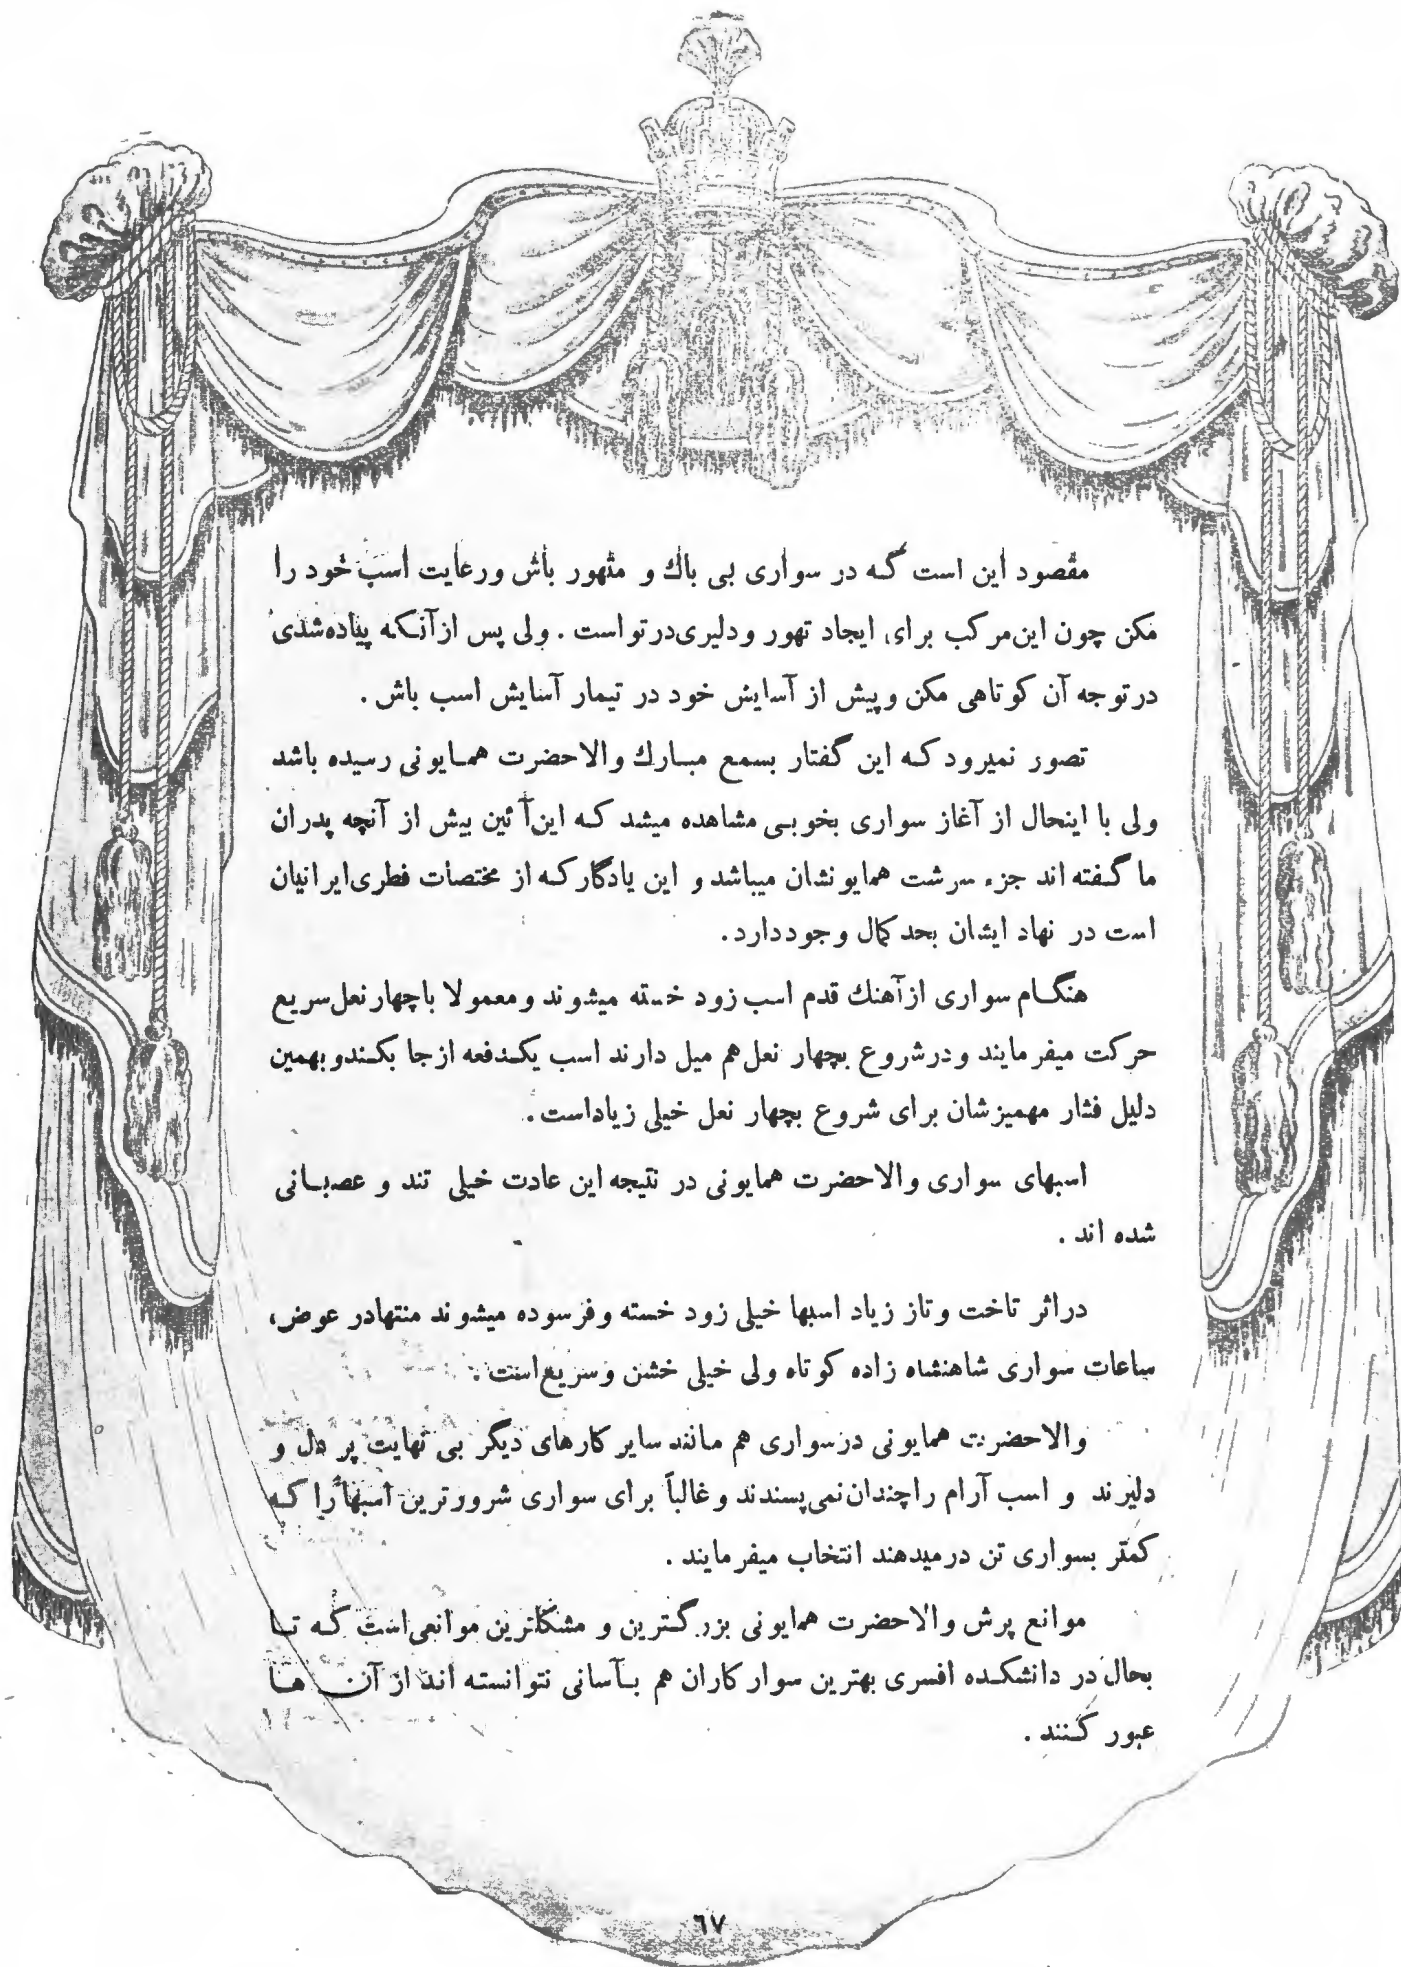 مقصود این است که در سواری بی باك و متهور باش ورعایت اسب خود را
مکن چون این مرکب برای ایجاد تهور و دلیری در تو است . ولی پس از آنکه پیاده شدی
در توجه آن کوتاهی مکن و پیش از آسایش خود در تیمار آسایش اسب باش .
تصور نمیرود که این گفتار بسمع مبارك والاحضرت همایونی رسیده باشد
ولی با اینحال از آغاز سواری بخوبی مشاهده میشد که این آئین بیش از آنچه پدران
ما گفته اند جزء سرشت همایونشان میباشد و این یادگار که از مختصات فطری ایرانیان
است در نهاد ایشان بحد کمال وجود دارد .
هنگام سواری از آهنك قدم اسب زود خسته میشوند و معمولا با چهار نعل سریع
حرکت میفرمایند و در شروع بچهار نعل هم میل دارند اسب یکدفعه از جا بکند و بهمین
دلیل فشار مهمیزشان برای شروع بچهار نعل خیلی زیاد است .
اسبهای سواری والاحضرت همایونی در نتیجه این عادت خیلی تند و عصبانی
شده اند .
در اثر تاخت و تاز زیاد اسبها خیلی زود خسته و فرسوده میشوند منتها در عوض،
ساعات سواری شاهنشاه زاده کوتاه ولی خیلی خشن و سریع است .
والاحضرت همایونی در سواری هم مانند سایر کارهای دیگر بی نهایت پر دل و
دلیرند و اسب آرام را چندان نمی پسندند و غالباً برای سواری شرورترین اسبها را که
کمتر بسواری تن در میدهند انتخاب میفرمایند .
موانع پرش والاحضرت همایونی بزرگترین و مشکلترین موانعی است که تا
بحال در دانشکده افسری بهترین سوارکاران هم بآسانی نتوانسته اند از آن ها
عبور کنند .
٦٧